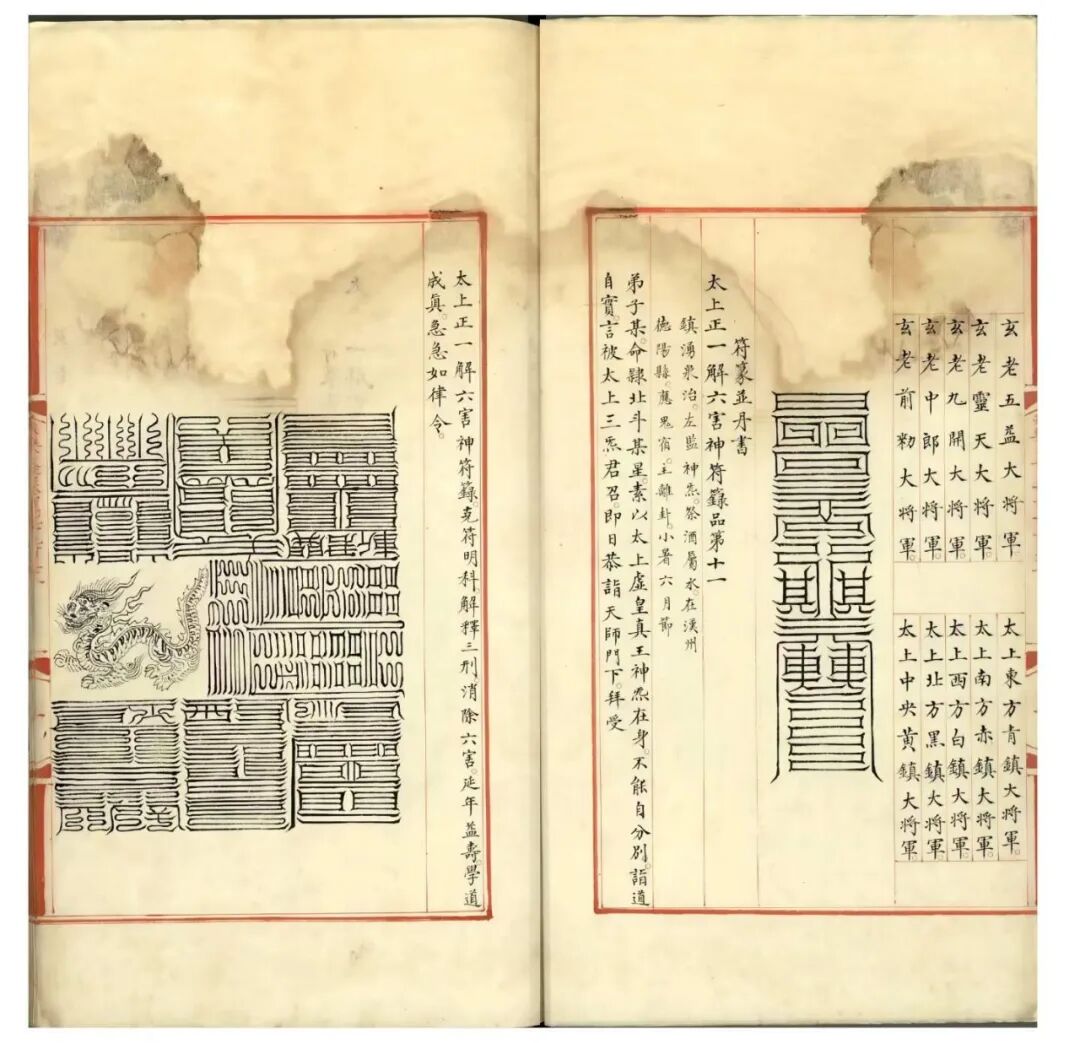 玄老五益大將軍。
玄老靈天大將軍。
玄老九開大將軍。
玄老中郎大將軍。
玄老前勑大將軍。
太上東方青鎮大將軍。
太上南方赤鎮大將軍。
太上西方白鎮大將軍。
太上北方黑鎮大將軍。
太上中央黃鎮大將軍。
符篆並丹書
太上正一解六害神符籙品第十一
鎮湧泉治。左監神炁。祭酒屬水。在漢州
德陽縣。應鬼宿。主離卦。小暑六月節
弟子某。命隸北斗某星。素以太上虛皇真王神炁在身。不能自分別。詣道
自實。言被太上三炁君召。即日恭詣天師門下。拜受
太上正一解六害神符籙。克符明科。解釋三刑。消除六害。延年益壽。學道
成真。急急如律令。